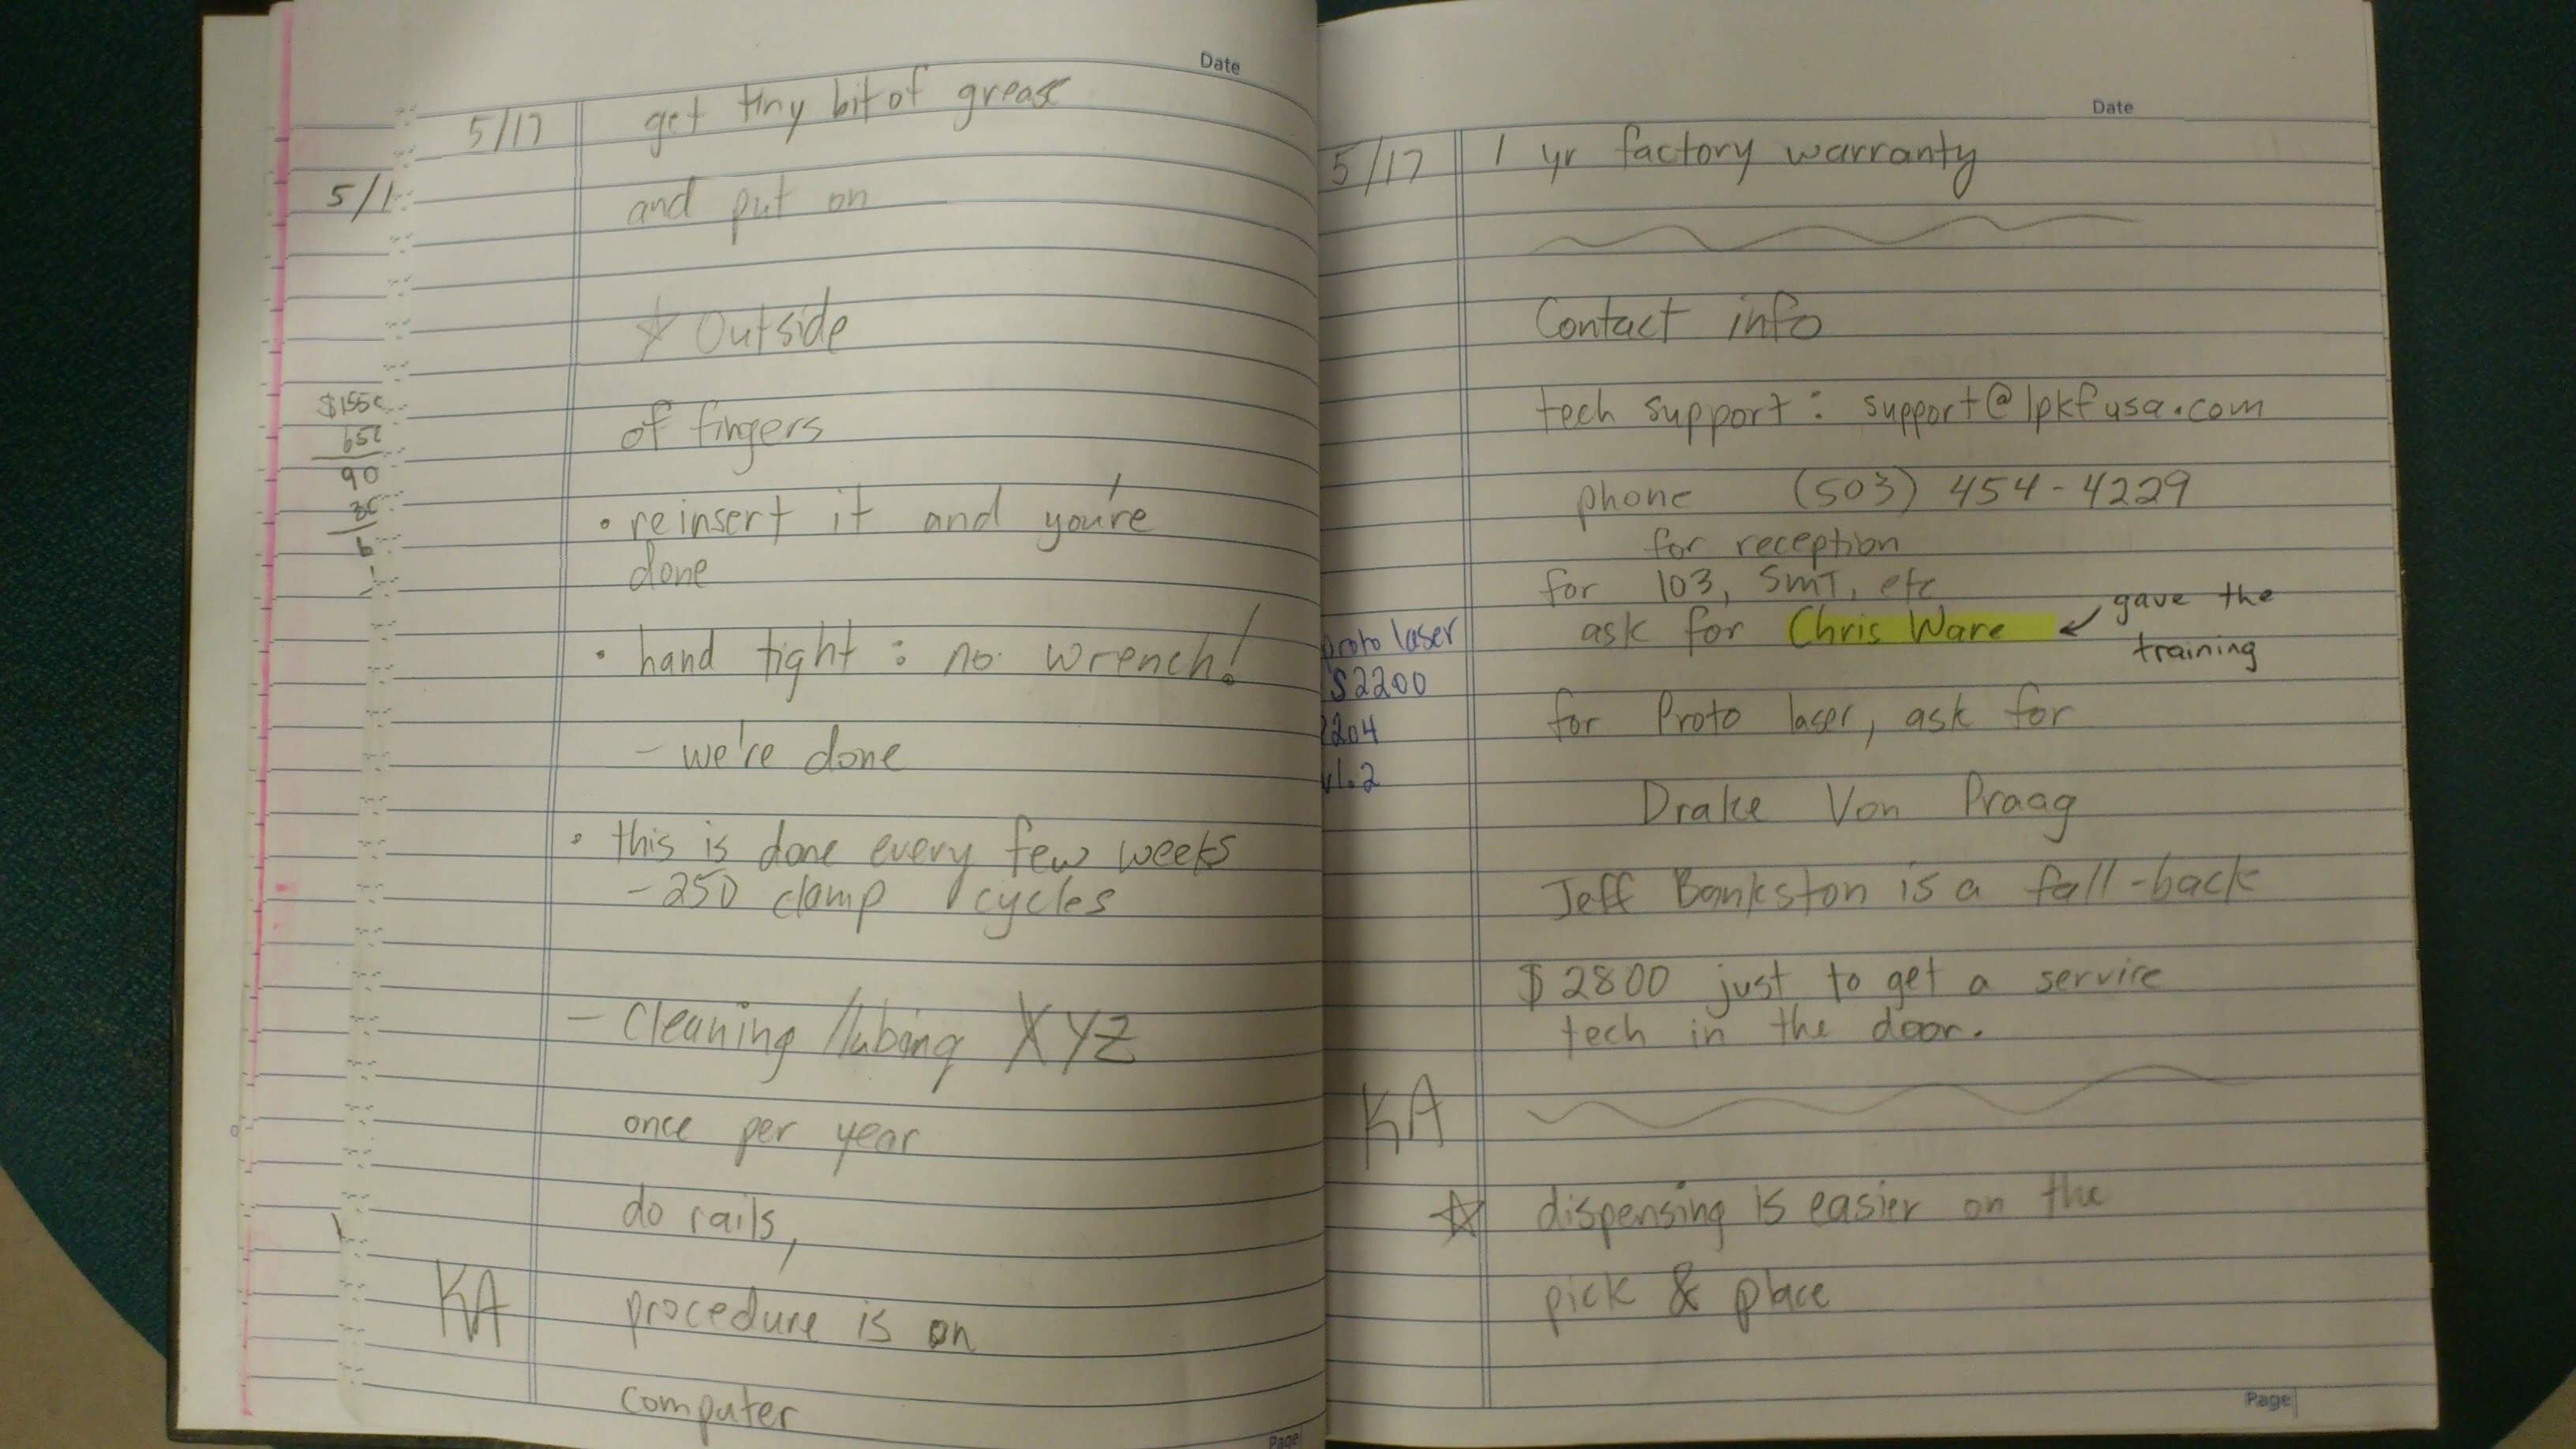 Date
5/17 get tiny bit of grease
and put on
☆ Outside
of fingers
• reinsert it and you're
done
• hand tight : no wrench!
- we're done
• this is done every few weeks
- 250 clamp cycles
- Cleaning / lubing XYZ
once per year
do rails,
KA procedure is on
computer
Page
5/1
90
Date
5/17 1 yr factory warranty
Contact info
tech support : support@lpkfusa.com
phone (503) 454-4229
for reception
for 103, SMT, etc
ask for Chris Ware ↙ gave the
training
proto laser
S2200
for Proto laser, ask for
v1.2
Drake Von Praag
Jeff Bankston is a fall-back
$2800 just to get a service
tech in the door.
KA
☆ dispensing is easier on the
pick & place
Page